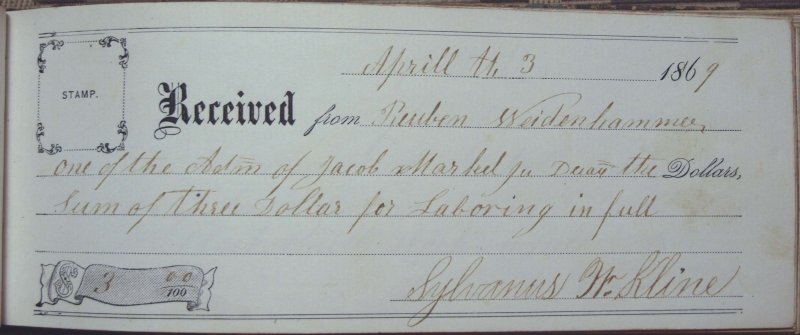 Aprill th 3 1869
STAMP.
Received from Reuben Weidenhammer
one of the Adm of Jacob Markel Ju Decd the Dollars,
Sum of three Dollar for Laboring in full
3 00/100
Sylvanus W. Kline